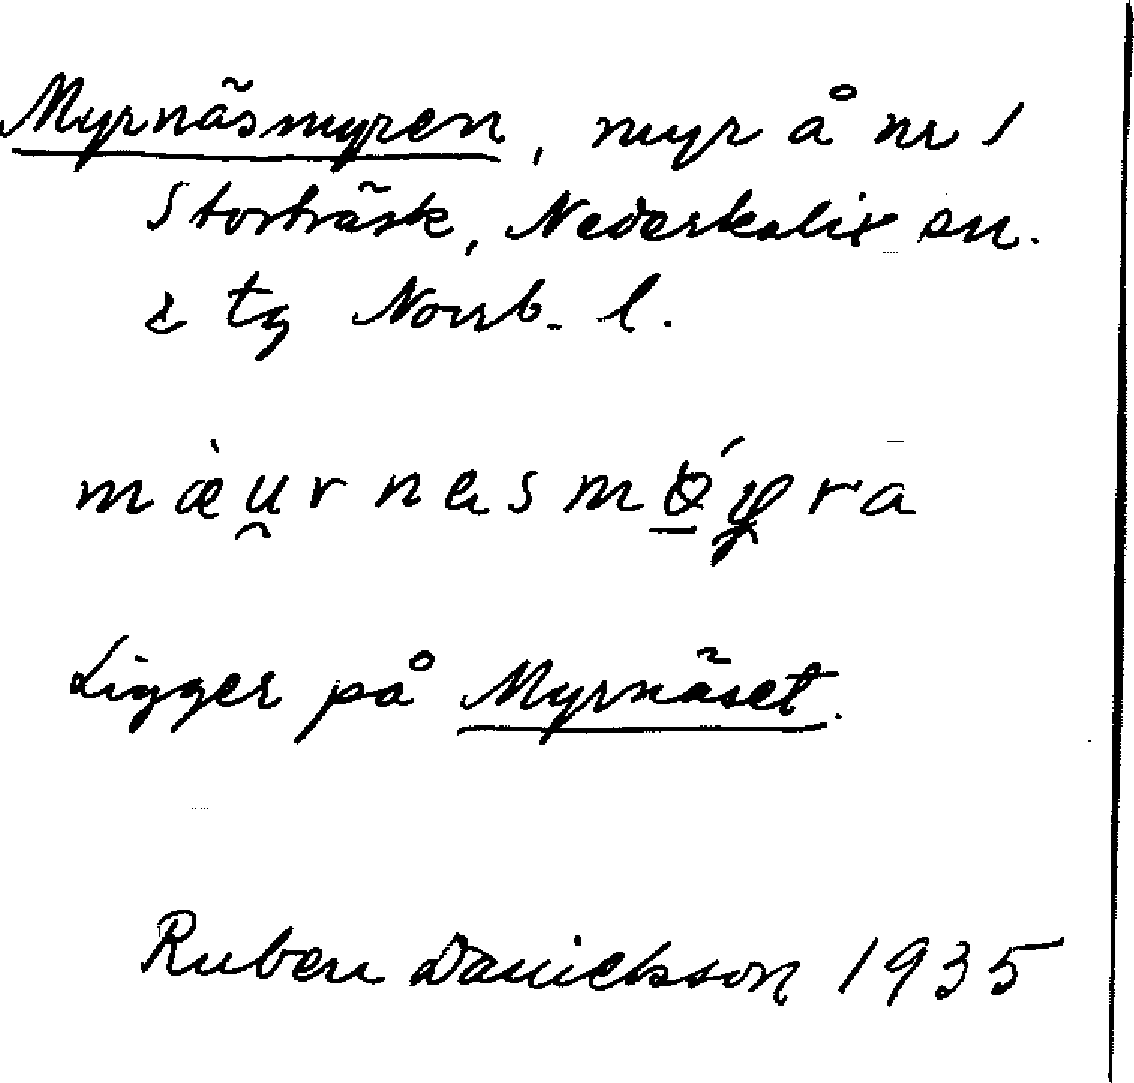 Myrnäsmyren, myr å nr 1
Storträsk, Nederkalix sn.
o tg Norrb. l.
Ligger på Myrnäset.
Ruben Danielsson 1935